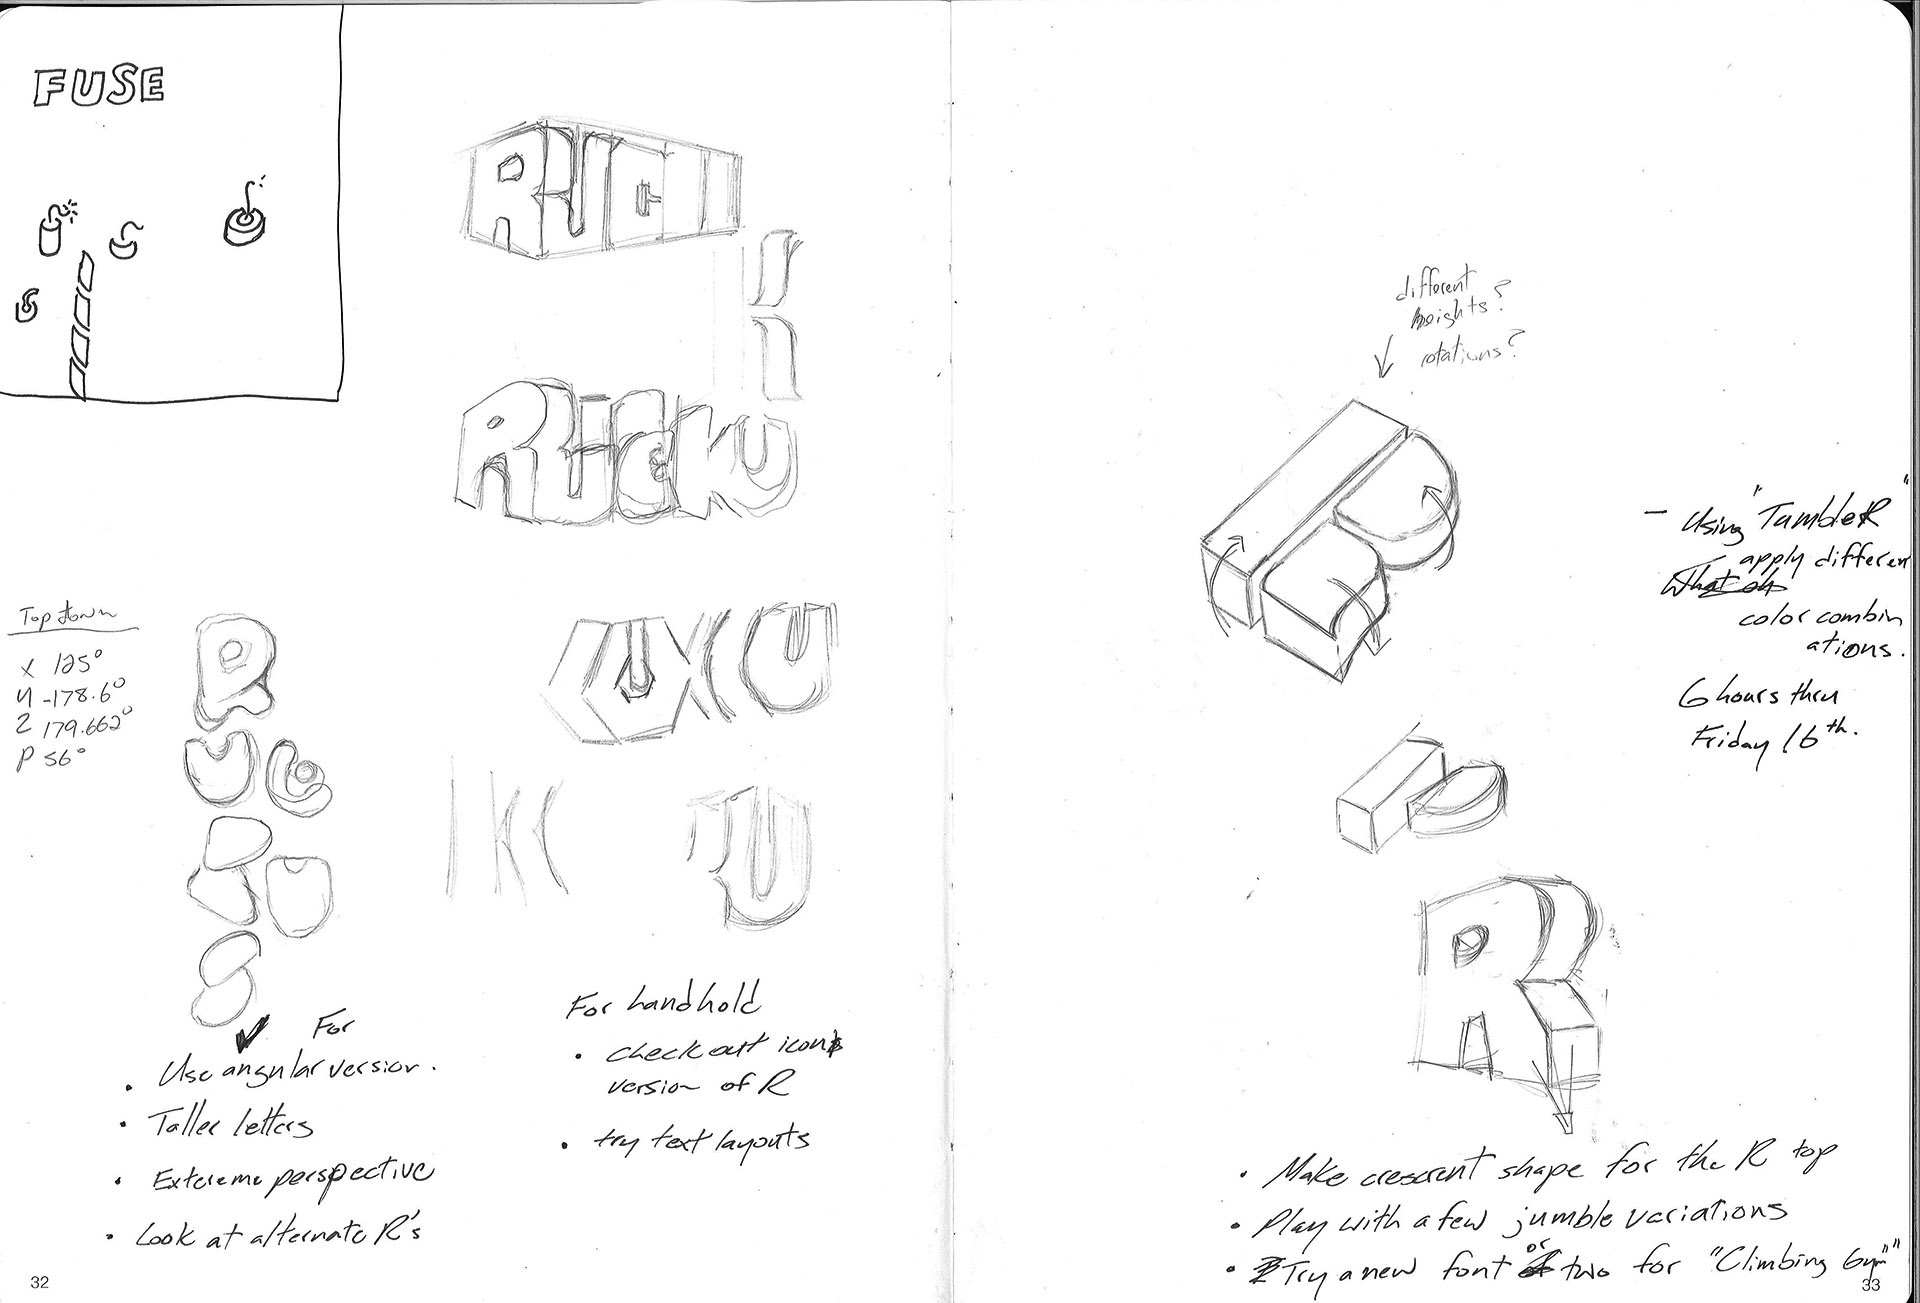 FUSE
RUC
RUCKU
Top down
X 125°
Y -178.6°
Z 179.662°
P 56°
R
U C
K U
S
U X U
K
U
For
Use angular version.
• Taller letters
• Extereme perspective
• Look at alternate R's
For handhold
• check out icon
version of R
• try text layouts
32
different
heights?
rotations?
R
— Using "TumbleR"
apply differen
color combin
ations.
6 hours thru
Friday 16th.
R
• Make crescent shape for the R top
• Play with a few jumble variations
• Try a new font or two for "Climbing Gym"
33